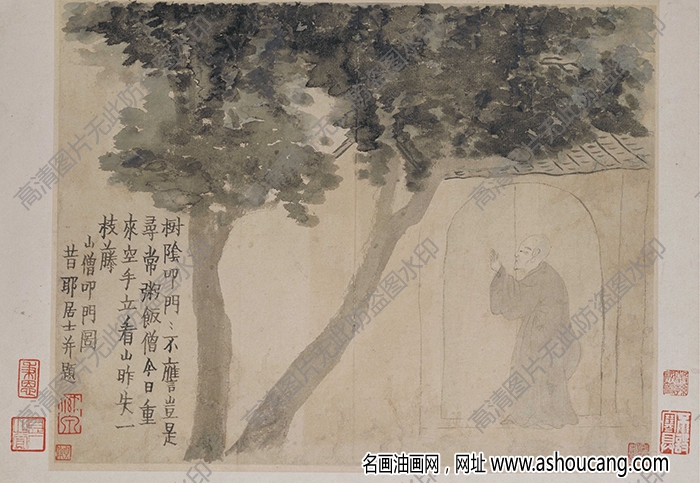 樹陰叩門〻不譍豈是
尋常粥飯僧今日重
來空手立看山昨失一
枝藤
山僧叩門圖
昔耶居士并題
高清图片无此防盗图水印
名画油画网，网址 www.ashoucang.com